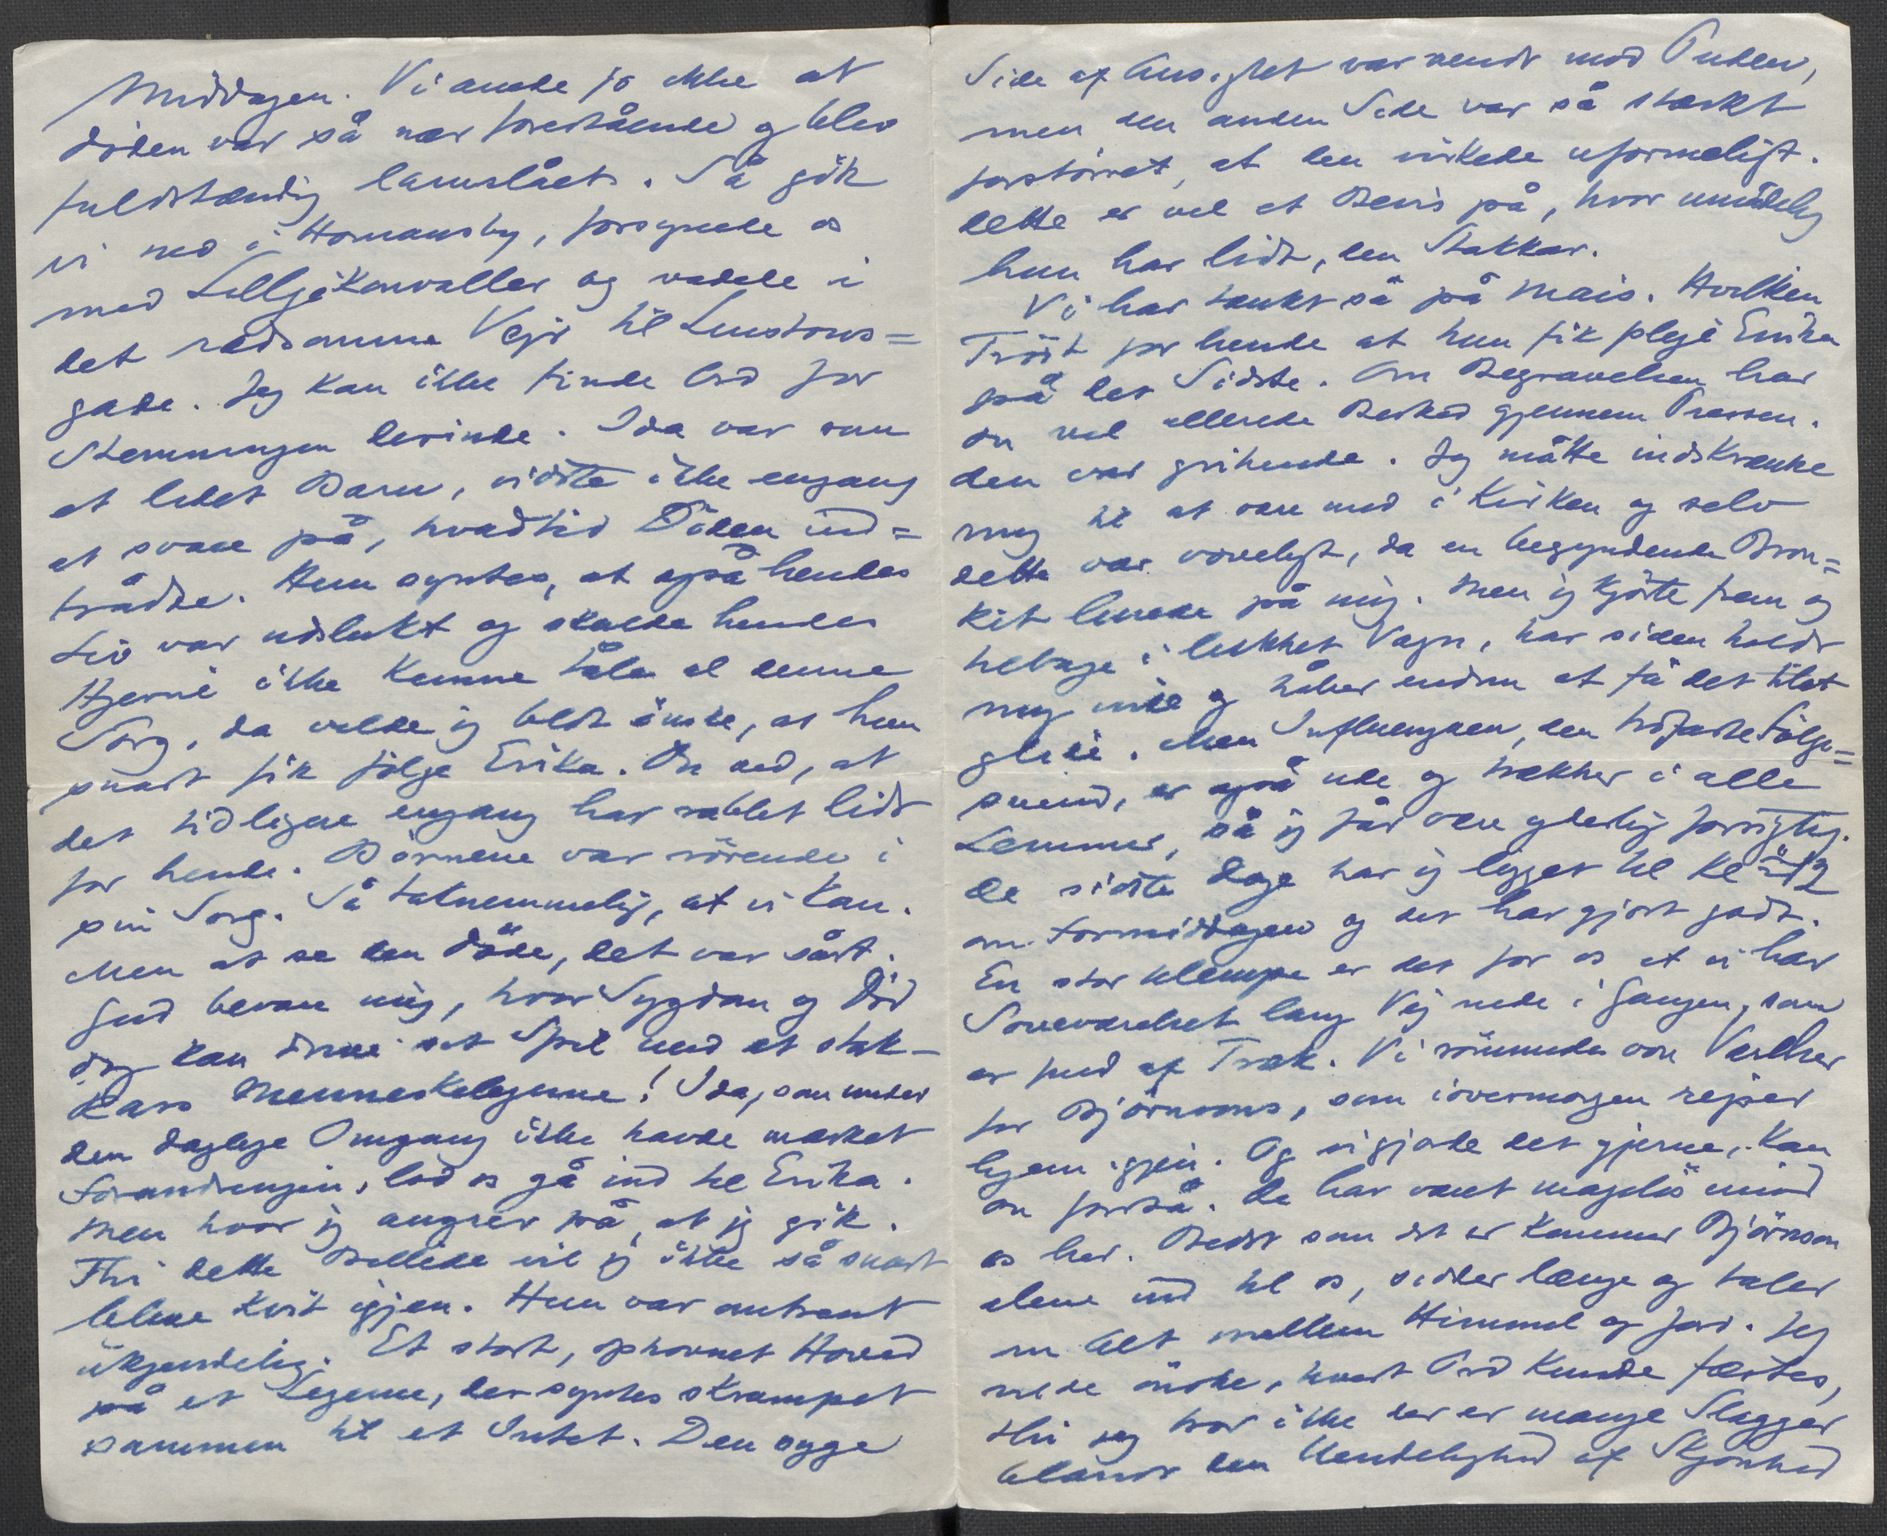 Middagen. Vi anede jo ikke at
Döden var så nær forestående og blev
fuldstændig lamslået. Så gik
vi ned i Homansby, forsynede os
med Lilljekonvaller og vadede i
det redsomme Vejr til Linstows=
gade. Jeg kan ikke finde Ord for
Stemningen derinde. Ida var som
et lidet Barn, vidste ikke engang
at svare på, hvadtid Döden ind=
trådte. Hun syntes, at også hendes
Liv var udslukt og skulde hendes
Hjerne ikke kunne tåle al denne
Sorg, da vilde jeg blot önske, at hun
snart fik fölge Erika. Du ved, at
det tidligere engang har rablet lidt
for hende. Börnene var rörende i
sin Sorg. Så taknemmelig, at vi kom.
Men at se den döde, det var sårt.
Gud bevare mig, hvor Sygdom og Död
dog kan drive sit Spil med et stak-
kars Menneskelegeme! Ida, som under
den daglige Omgang ikke havde mærket
Forandringen, lod os gå ind til Erika.
Men hvor jeg angrer på, at jeg gik.
Thi dette Billede vil jeg ikke så snart
blive kvit igjen. Hun var omtrent
ukjendelig. Et stort, ophovnet Hoved
på et Legeme, der syntes skrumpet
sammen til et Intet. Den syge
Side af Ansigtet var vendt mod Puden,
men den anden Side var så stærkt
forstörret, at den virkede uformeligt.
Dette er vel et Bevis på, hvor umådelig
hun har lidt, den Stakkar.
Vi har tænkt så på Mais. Hvilken
Tröst for hende at hun fik pleje Erika
på det Sidste. Om Begravelsen har
du vel allerede Besked gjennem Pressen.
Den var gribende. Jeg måtte indskrænke
mig til at være med i Kirken og selv
dette var voveligt, da en begyndende Bron=
kit lurede på mig. Men jeg kjörte frem og
tilbage i lukket Vogn, har siden holdt
mig inde og håber endnu at få det til at
glide. Men Influenzaen, den trofaste Fölge=
svend, er også ude og trækker i alle
Lemmer, så jeg får være yderlig forsigtig.
De sidste Dage har jeg ligget til Kl 12
om Formiddagen og det har gjort godt.
En stor Ulempe er det for os at vi har
Soveværelset lang Vej nede i Gangen, som
er fuld af Træk. Vi römmede vore Værelser
for Björnsons, som iovermorgen rejser
hjem igjen. Og vi gjorde det gjerne, kan
du forstå. De har været mageløs mod
os her. Bedst som det er kommer Björnson
alene ind til os, sidder længe og taler
om Alt mellem Himmel og Jord. Jeg
vilde önske, hvert Ord kunde fæstes,
thi jeg tror ikke der er mange Slagger
blandt den Uendelighed af Skjönhed